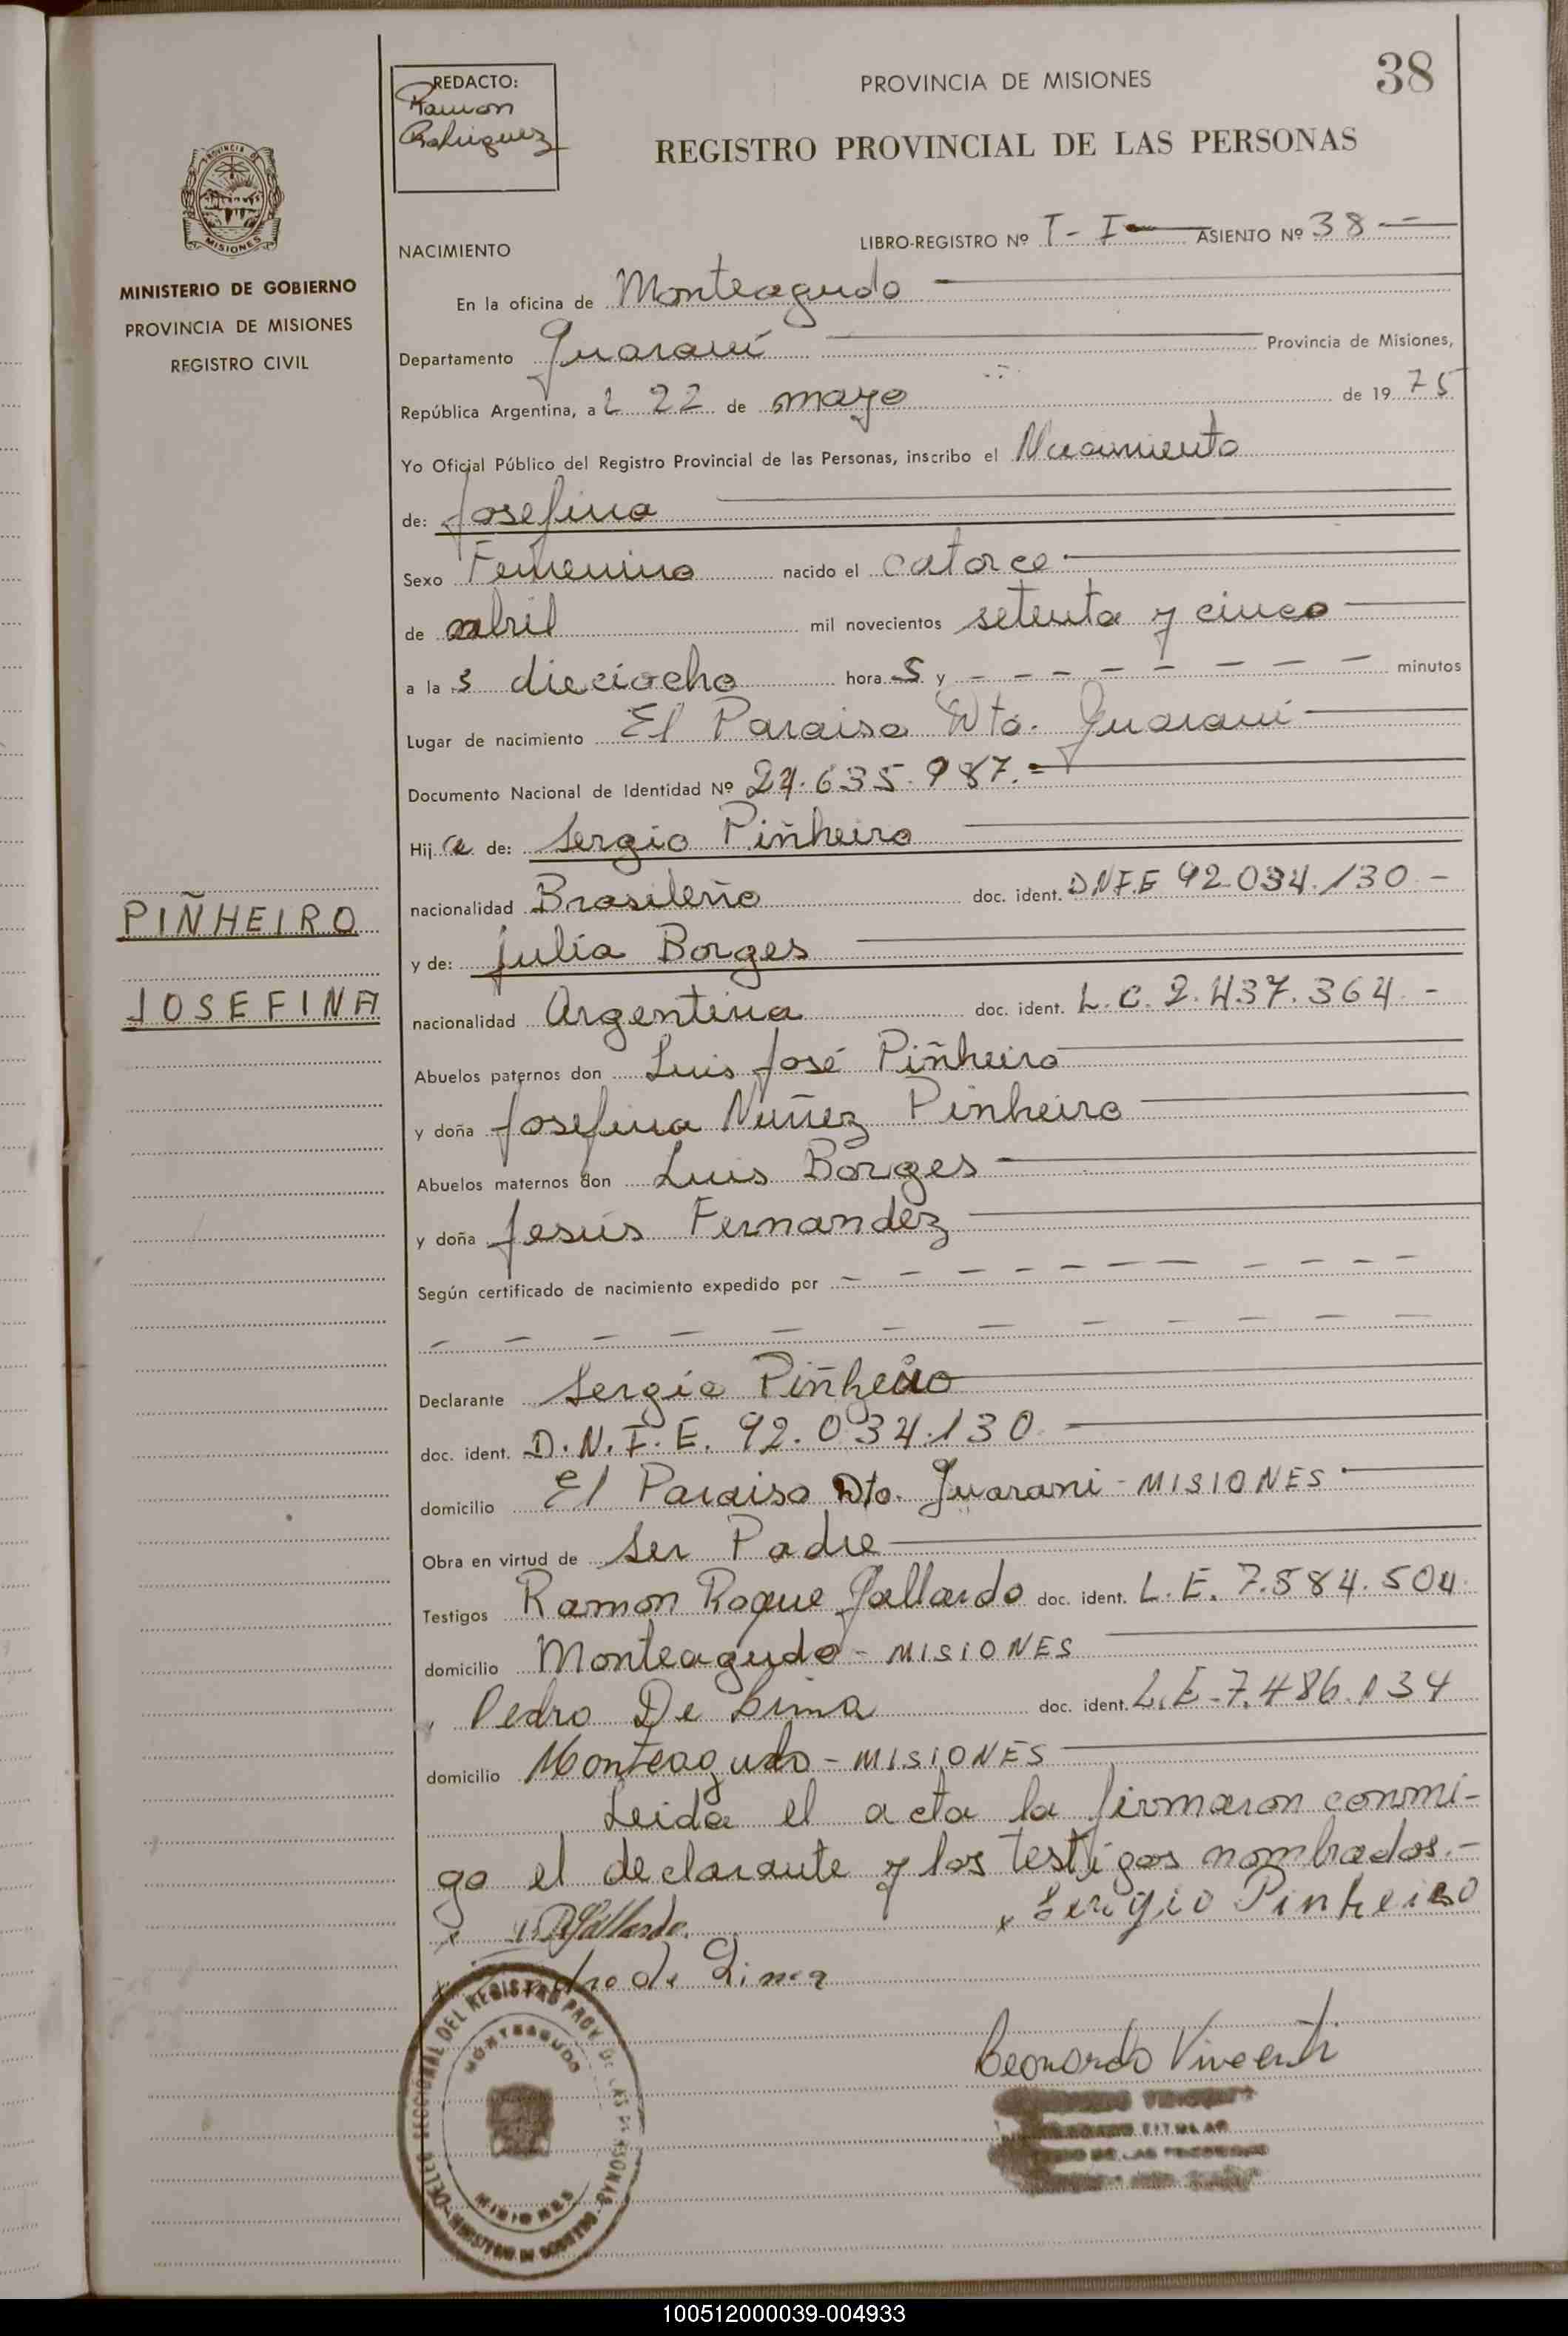 38
REDACTO:
Ramon
Rodriguez
PROVINCIA DE MISIONES
REGISTRO PROVINCIAL DE LAS PERSONAS
PROVINCIA DE
MISIONES
MINISTERIO DE GOBIERNO
PROVINCIA DE MISIONES
REGISTRO CIVIL
NACIMIENTO
LIBRO-REGISTRO Nº T - I — ASIENTO Nº 38 —
En la oficina de Monteagudo —
Departamento Guaraní — Provincia de Misiones,
República Argentina, a l 22 de mayo de 19 75
Yo Oficial Público del Registro Provincial de las Personas, inscribo el Nacimiento
de: Josefina —
Sexo Femenino nacido el catorce —
de abril mil novecientos setenta y cinco —
a la s dieciocho hora s y - - - - - - - - minutos
Lugar de nacimiento El Paraiso Dto. Guaraní —
Documento Nacional de Identidad Nº 24.635.987.=
Hij a de: Sergio Piñheiro —
nacionalidad Brasileño doc. ident. DNI.E 92.034.130 -
y de: Julia Borges —
nacionalidad Argentina doc. ident. L.C. 2.437.364 -
PIÑHEIRO
JOSEFINA
Abuelos paternos don Luis José Piñheiro —
y doña Josefina Nuñez Pinheiro —
Abuelos maternos don Luis Borges —
y doña Jesús Fernandez —
Según certificado de nacimiento expedido por - - - - - - - - - -
- - - - - - - - - - -
Declarante Sergio Piñheiro —
doc. ident. D.N.I.E. 92.034.130 —
domicilio El Paraiso Dto. Guarani - MISIONES —
Obra en virtud de Ser Padre —
Testigos Ramon Roque Gallardo doc. ident. L.E. 7.584.504
domicilio Monteagudo - MISIONES —
Pedro De Lima doc. ident. L.E - 7.486.134
domicilio Monteagudo - MISIONES —
Leida el acta la firmaron conmi-
go el declarante y los testigos nombrados.-
x Gallardo x Sergio Pinheiro
x Pedro de Lima
SECCIONAL DEL REGISTRO PROV. DE LAS PERSONAS
MONTEAGUDO
MISIONES
MINISTERIO DE GOBIERNO
Leonardo Vincenti
TITULAR
100512000039-004933